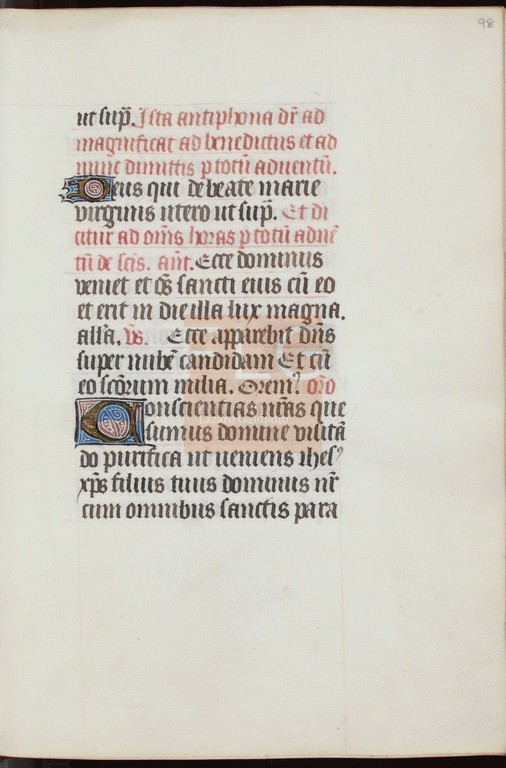 98
ut sup̄. Ista antiphona dr̄ ad
magnificat ad benedictus et ad
nunc dimittis p totū aduentū.
Deus qui de beate marie
virginis utero ut sup̄. Et di
citur ad om̄s horas p totū aduē
tū de scīs. ant̄. Ecce dominus
veniet et oēs sancti eius cū eo
et erit in die illa lux magna.
all'a. v̄s. Ecce apparebit dn̄s
super nubē candidam Et cū
eo scōrum milia. Orem' oro
Conscientias nr̄as que
sumus domine visitā
do purifica ut veniens ihes'
xp̄s filius tuus dominus nr̄
cum omnibus sanctis para